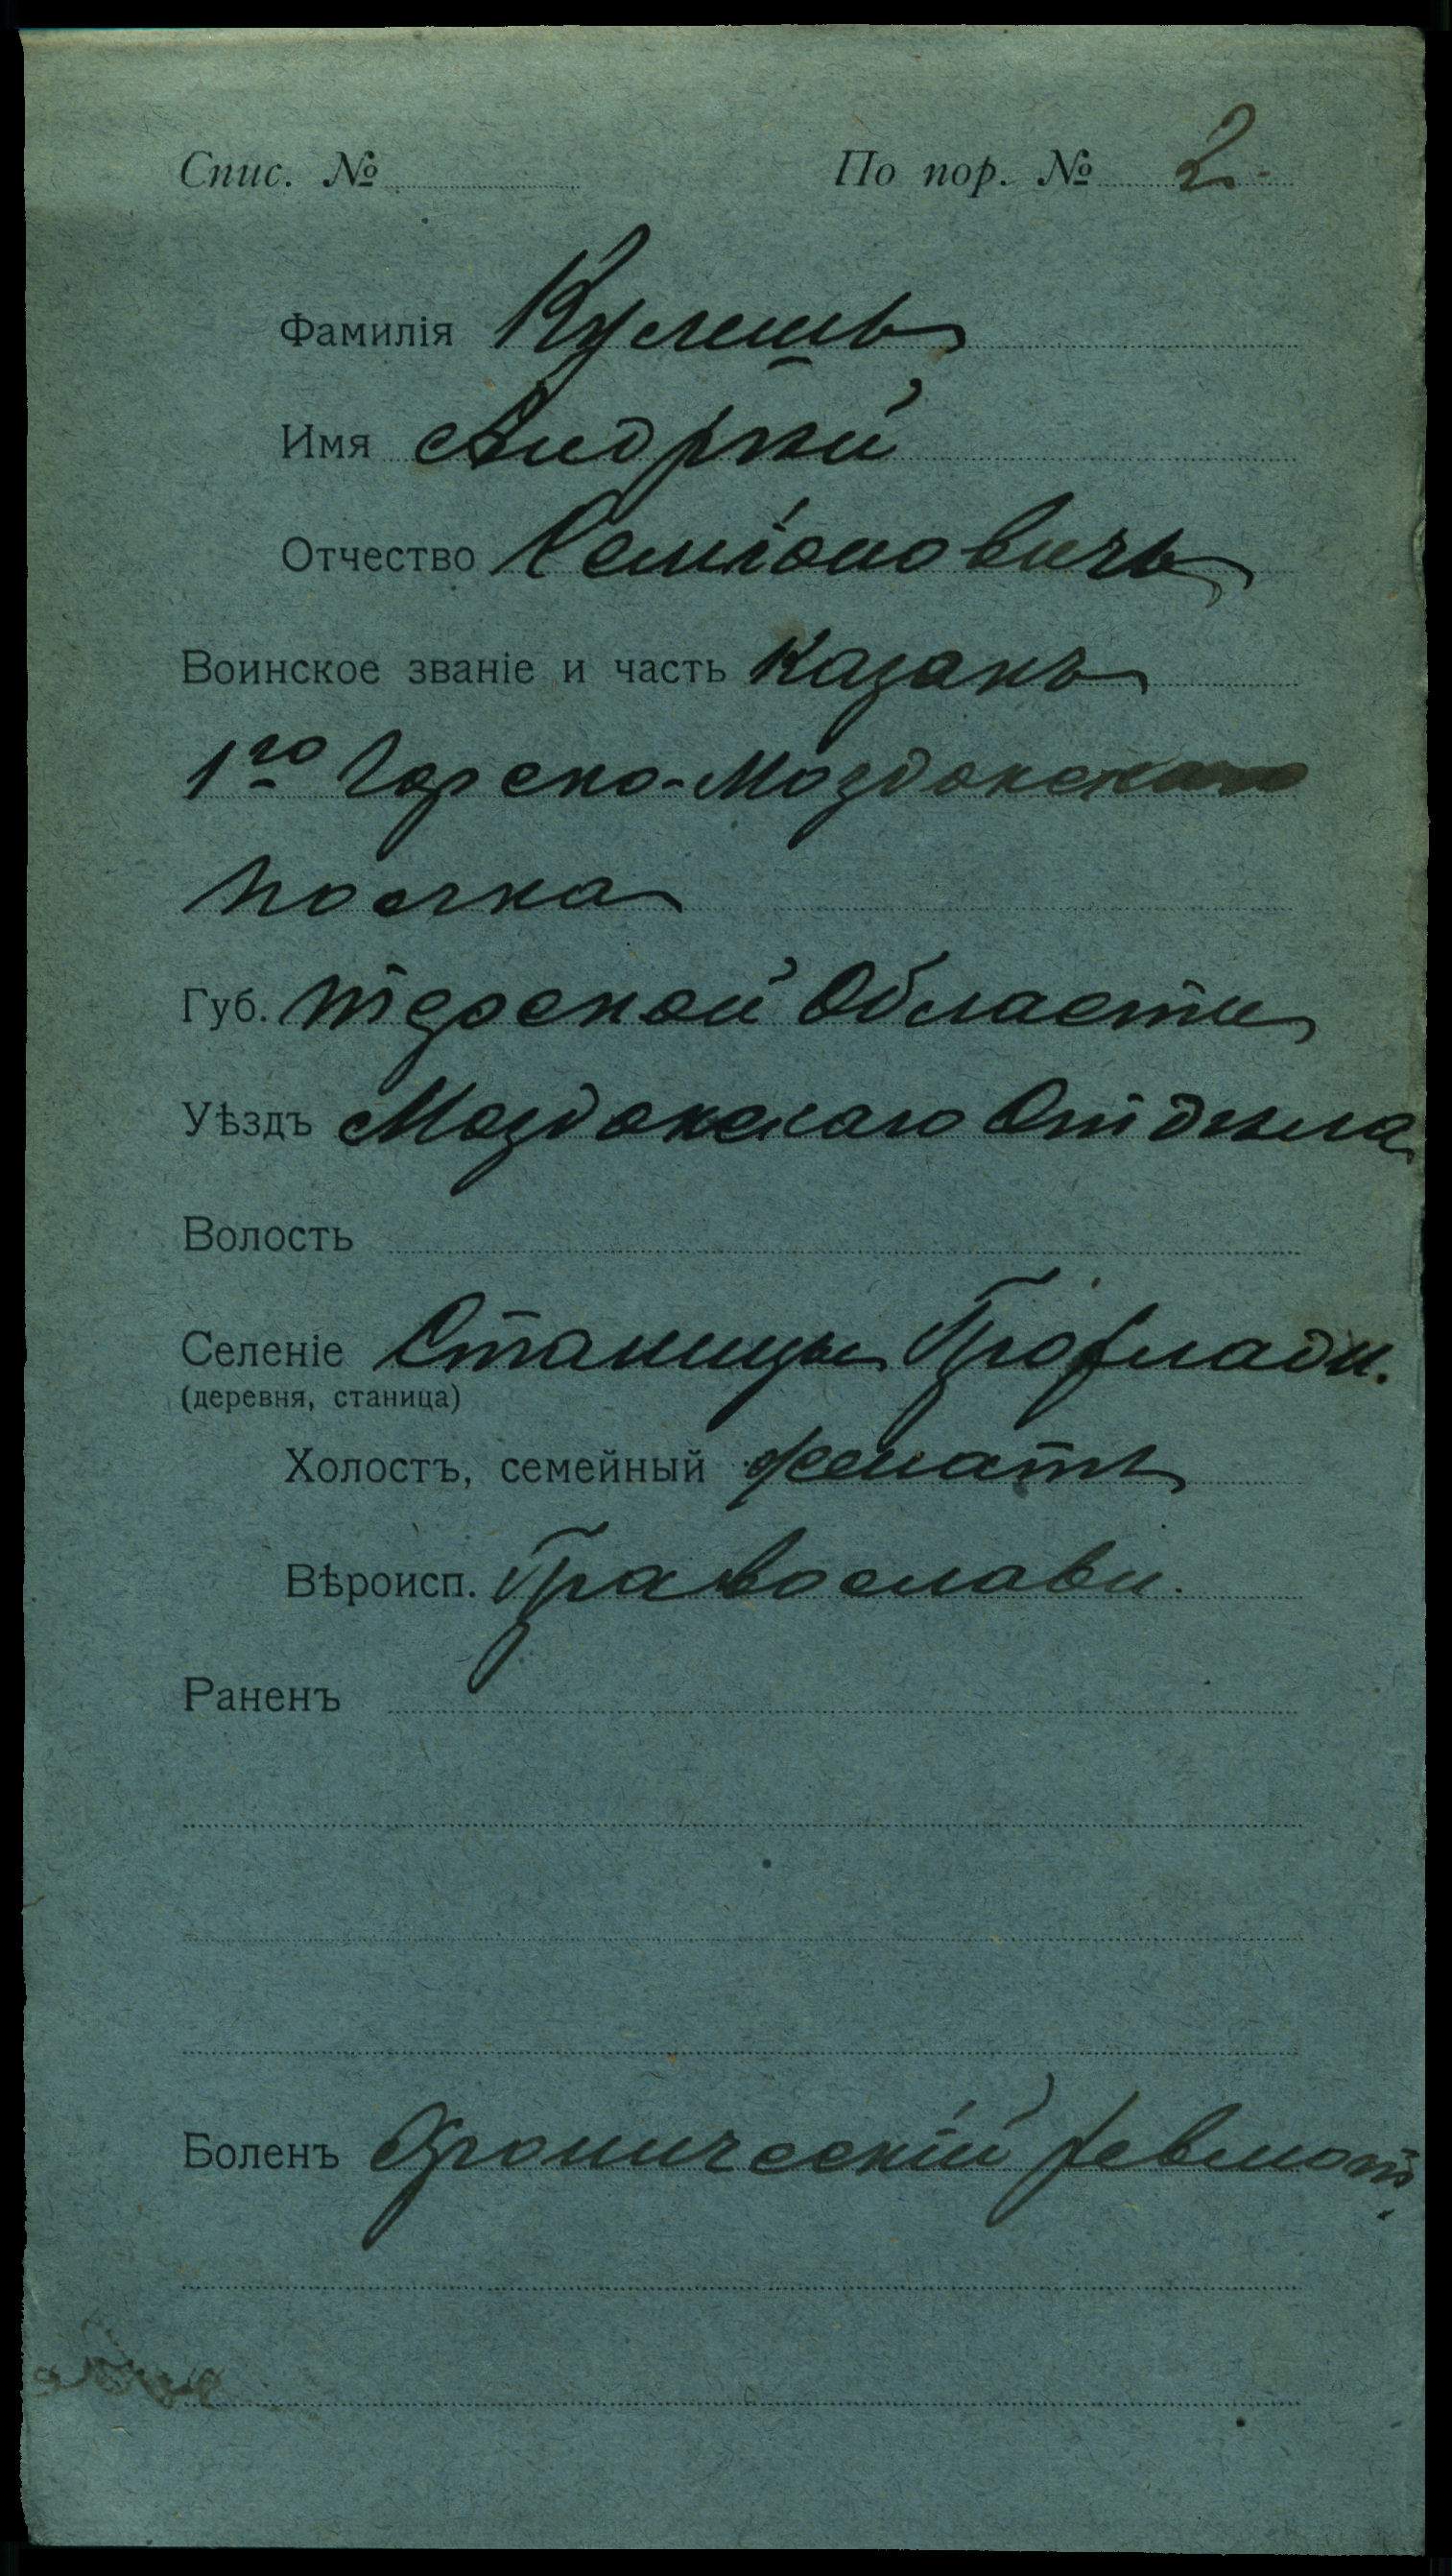 Спис. № По пор. № 2
Фамилія Кулешъ
Имя Андрѣй
Отчество Семіоновичъ
Воинское званіе и часть Казакъ
1го Горско-Моздокскаго
полка
Губ. Терской Области
Уѣздъ Моздокскаго Отдѣла
Волость
Селеніе Станицы Прохлади.
(деревня, станица)
Холостъ, семейный женатъ
Вѣроисп. Православн.
Раненъ
Боленъ Хроническій ревмат.